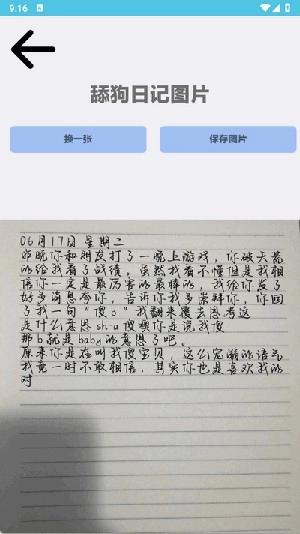 9:16
舔狗日记图片
换一张
保存图片
06月17日 星期二
昨晚你和朋友打了一晚上游戏,你破天荒
的给我看了战绩,虽然我看不懂但是我相
信你一定是最厉害的最棒的,我给你发了
好多消息夸你,告诉你我多崇拜你,你回
了我一句"傻b"我翻来覆去思考这
是什么意思sha傻噢你是说我傻
那b就是baby的意思了吧。
原来你是在叫我傻宝贝,这么宠溺的语气
我竟一时不敢相信,其实你也是喜欢我的
对